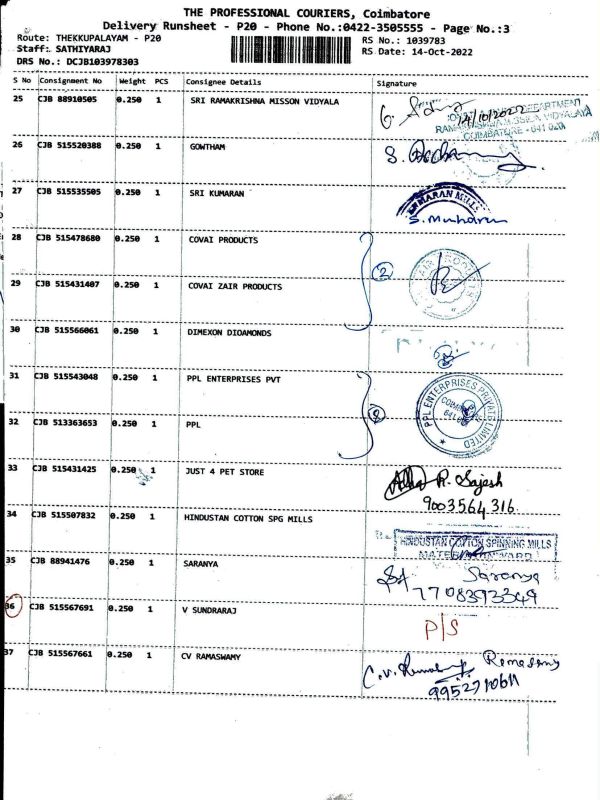 THE PROFESSIONAL COURIERS, Coimbatore
Delivery Runsheet - P20 - Phone No.:0422-3505555 - Page No.:3
Route: THEKKUPALAYAM - P20
RS No.: 1039783
Staff: SATHIYARAJ
RS Date: 14-Oct-2022
DRS No.: DCJB103978303
S No Consignment No Weight PCS Consignee Details Signature
25 CJB 88910505 0.250 1 SRI RAMAKRISHNA MISSON VIDYALA
14/10/2022
COIMBATORE - 641 020
26 CJB 515520388 0.250 1 GOWTHAM
27 CJB 515535505 0.250 1 SRI KUMARAN
KUMARAN MILLS
28 CJB 515478680 0.250 1 COVAI PRODUCTS
2
29 CJB 515431407 0.250 1 COVAI ZAIR PRODUCTS
30 CJB 515566061 0.250 1 DIMEXON DIOAMONDS
31 CJB 515543048 0.250 1 PPL ENTERPRISES PVT
PPL ENTERPRISES PRIVATE LIMITED
2
32 CJB 513363653 0.250 1 PPL
33 CJB 515431425 0.250 1 JUST 4 PET STORE
R. Sajesh
9003564316
34 CJB 515507832 0.250 1 HINDUSTAN COTTON SPG MILLS
HINDUSTAN COTTON SPINNING MILLS
35 CJB 88941476 0.250 1 SARANYA
Saranya
7708393349
36 CJB 515567691 0.250 1 V SUNDRARAJ
P/S
37 CJB 515567661 0.250 1 CV RAMASWAMY